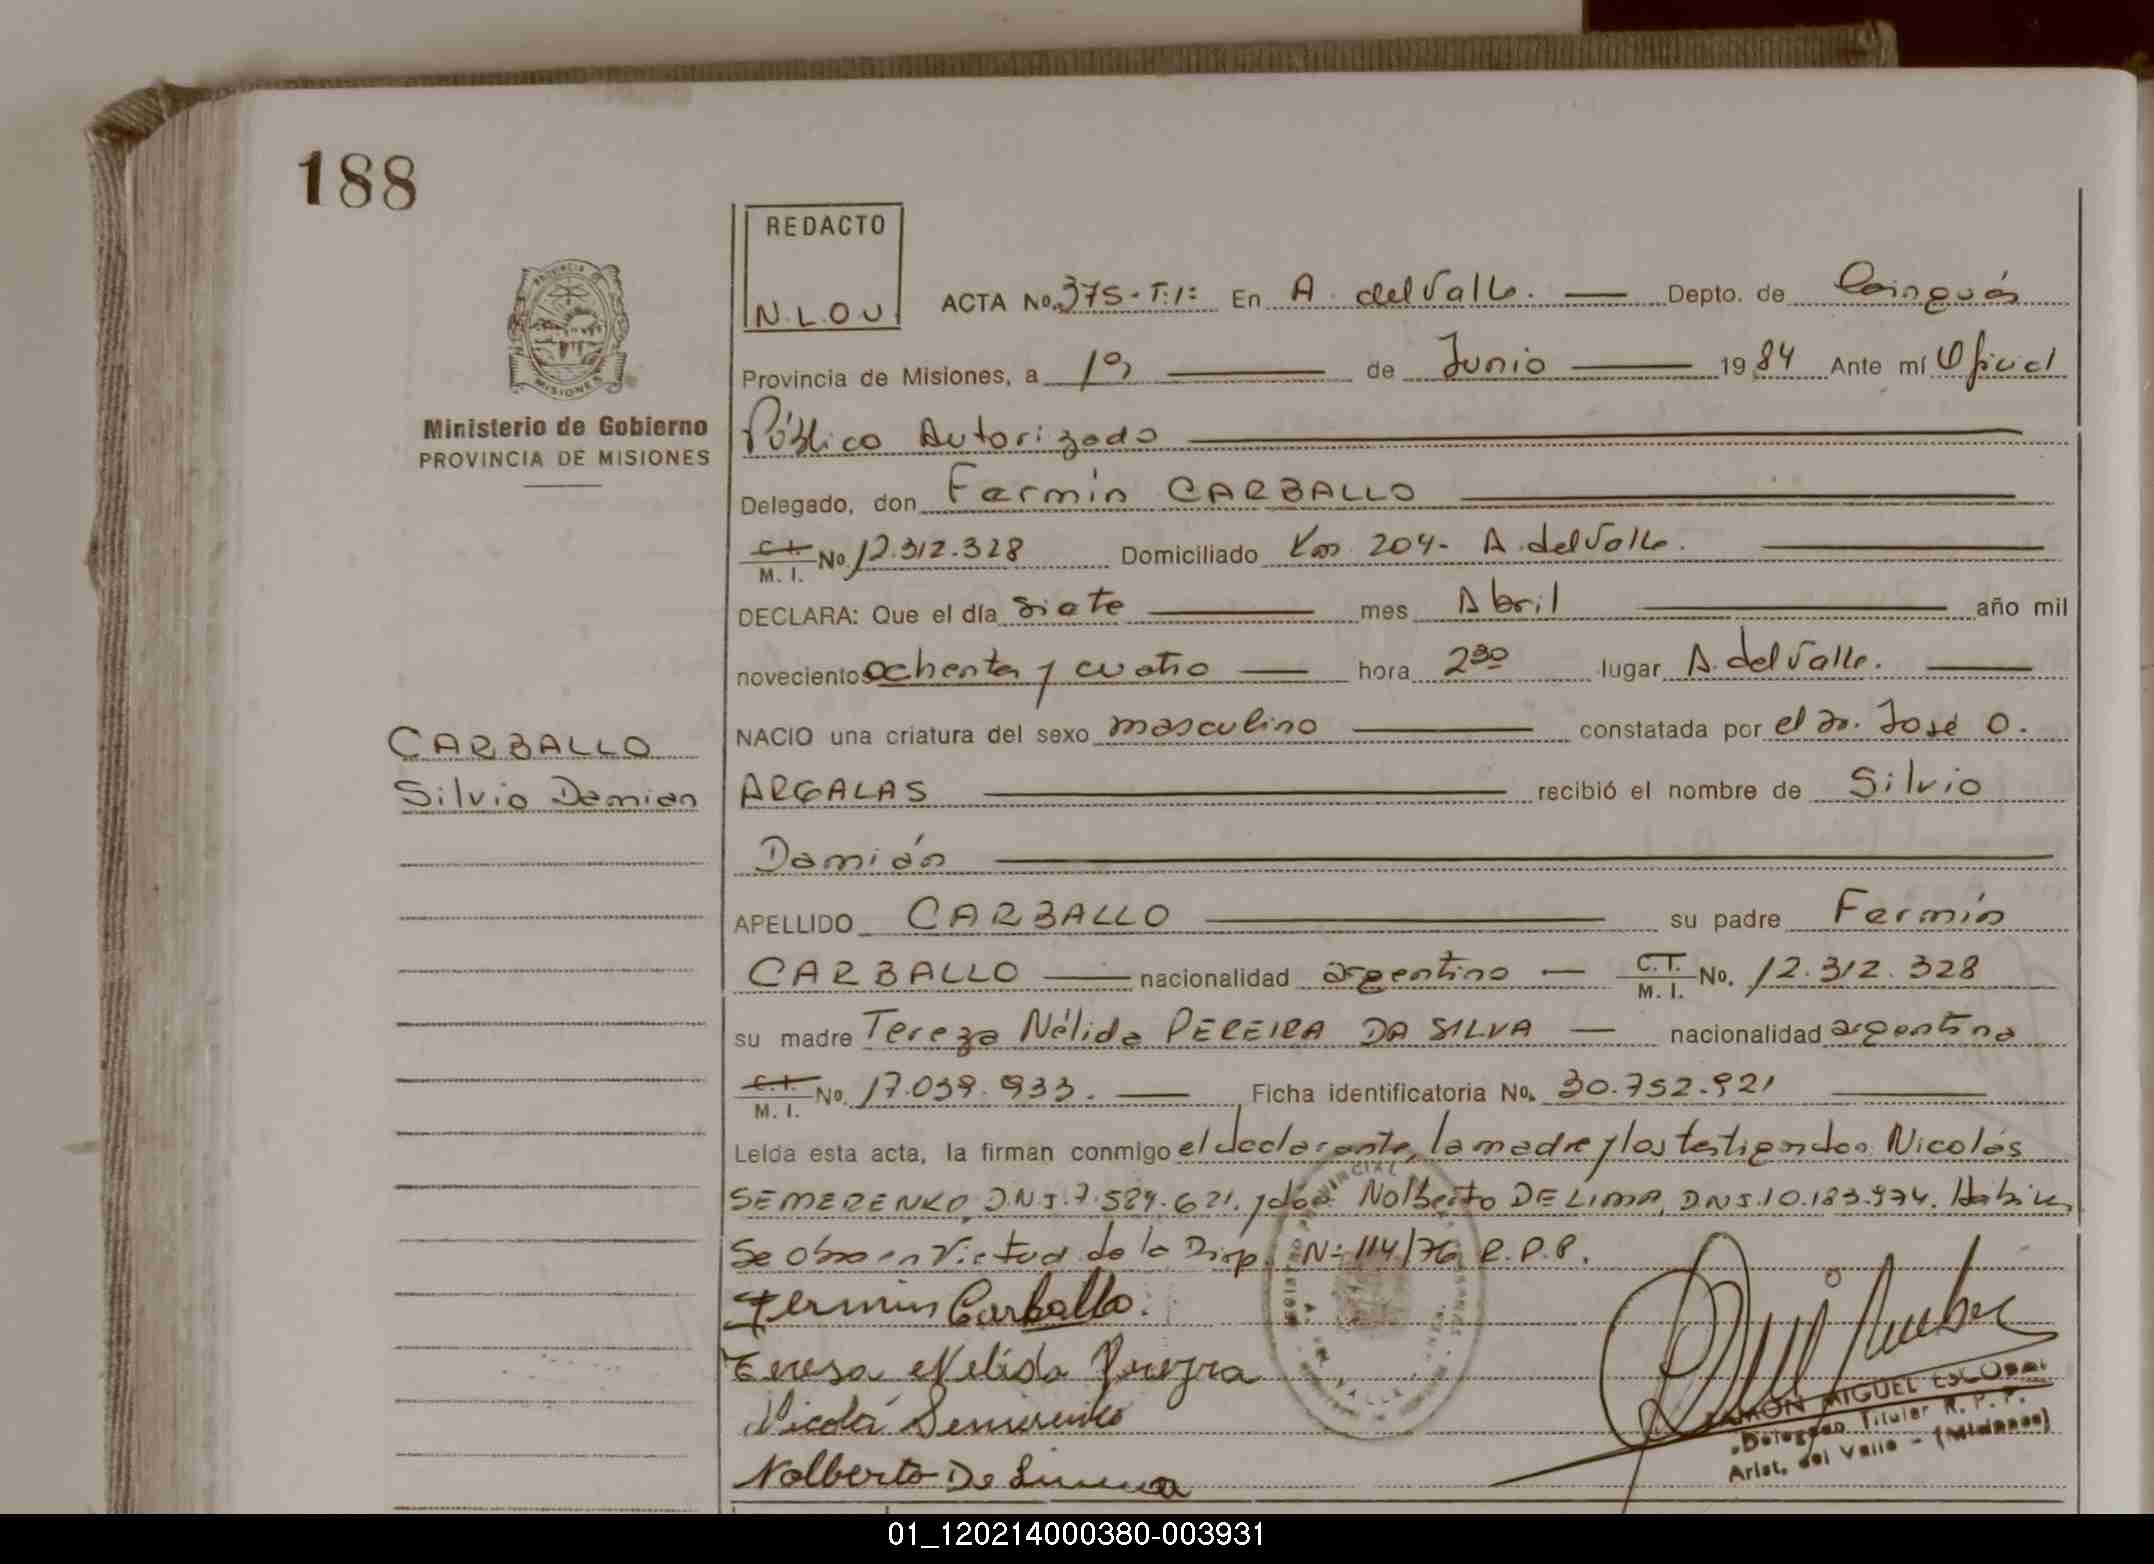 188
REDACTO
N.L.O.U.
ACTA No. 375-T:1: En A. del Valle. Depto. de Cainguás
PROVINCIA DE MISIONES
Provincia de Misiones, a 1º de Junio 1984 Ante mí Oficial
Ministerio de Gobierno
PROVINCIA DE MISIONES
Público Autorizado
Delegado, don Fermín CARBALLO
C.I. M.I. No. 12.312.328 Domiciliado Km 204- A. del Valle.
DECLARA: Que el día siete mes Abril año mil
novecientos ochenta y cuatro hora 2 30 lugar A. del Valle.
NACIO una criatura del sexo masculino constatada por el Dr. José O.
CARBALLO
Silvio Damian
ARGALAS recibió el nombre de Silvio
Damián
APELLIDO CARBALLO su padre Fermín
CARBALLO nacionalidad argentino C.I. M.I. No. 12.312.328
su madre Tereza Nélida PEREIRA DA SILVA nacionalidad argentina
C.I. M.I. No. 17.039.933. Ficha identificatoria No. 30.752.921
Leída esta acta, la firman conmigo el declarante, la madre y los testigos don Nicolás
SEMERENKO, D.N.I. 7.589.621. y don Nolberto DE LIMA, D.N.I. 10.183.974. Hábiles
Se obra en Virtud de la Disp. Nº 114/76 R.P.P.
Fermin Carballo.
Teresa Nelida Pereyra
Nicolá Semerenko
Nolberto De Lima
RAMÓN MIGUEL ESCOBAR
Delegado Titular R. P. P.
Arist. del Valle - (Misiones)
01_120214000380-003931